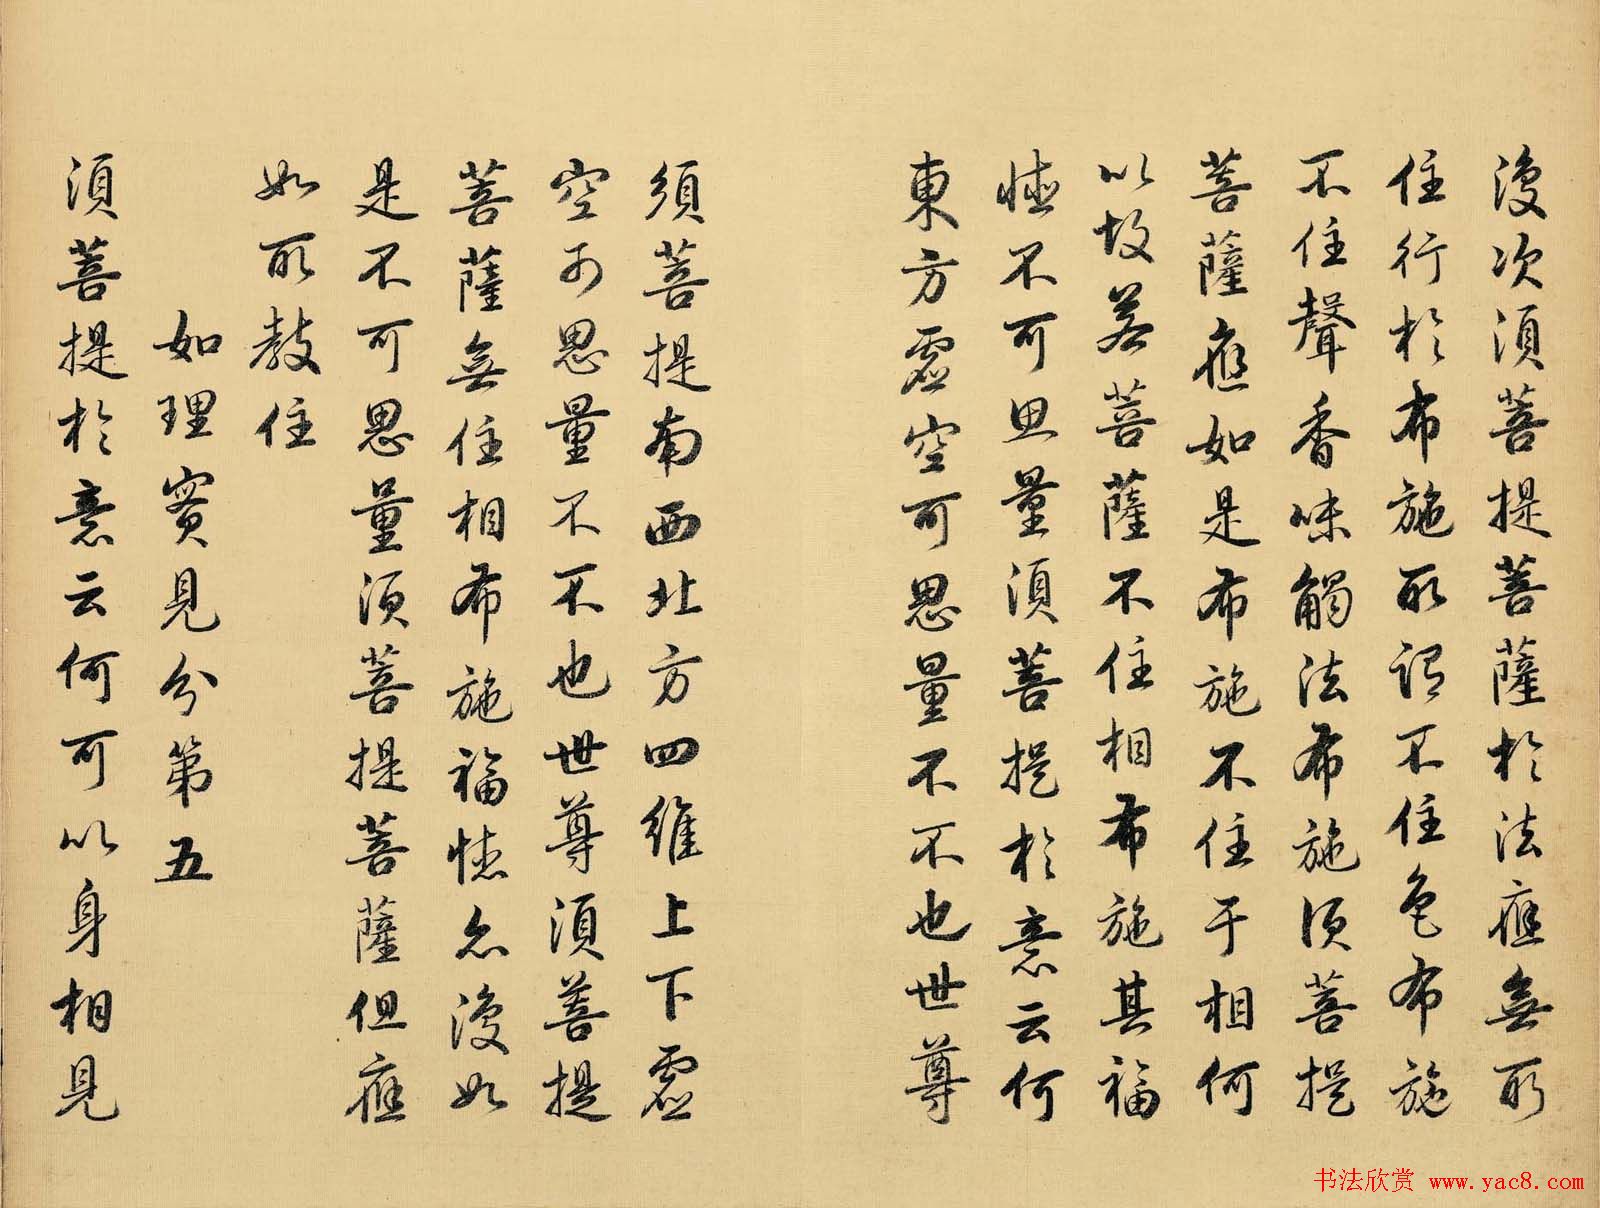 復次須菩提菩薩於法應無所
住行於布施所謂不住色布施
不住聲香味觸法布施須菩提
菩薩應如是布施不住于相何
以故若菩薩不住相布施其福
德不可思量須菩提於意云何
東方虛空可思量不不也世尊
須菩提南西北方四維上下虛
空可思量不不也世尊須菩提
菩薩無住相布施福德亦復如
是不可思量須菩提菩薩但應
如所教住
如理實見分第五
須菩提於意云何可以身相見
书法欣赏 www.yac8.com